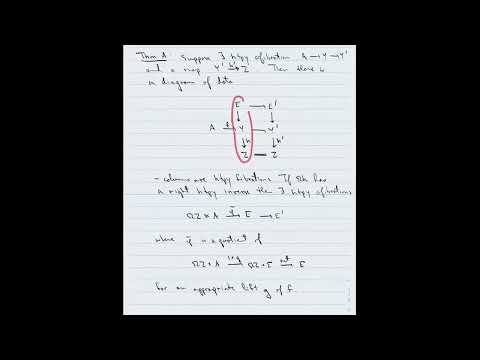 Thm A: Suppose ∃ htpy cofibration A → Y → Y'
and a map Y' →h' Z. Then there is
a diagram of data
E → E'
A →f Y → Y'
↓h ↓h'
Z — Z
- columns are htpy fibrations. If Ωh has
a right htpy inverse then ∃ htpy cofibrations
ΩZ ⋉ A → E → E'
where is a quotient of
ΩZ × A →1×g ΩZ × E → E
for an appropriate lift g of f.